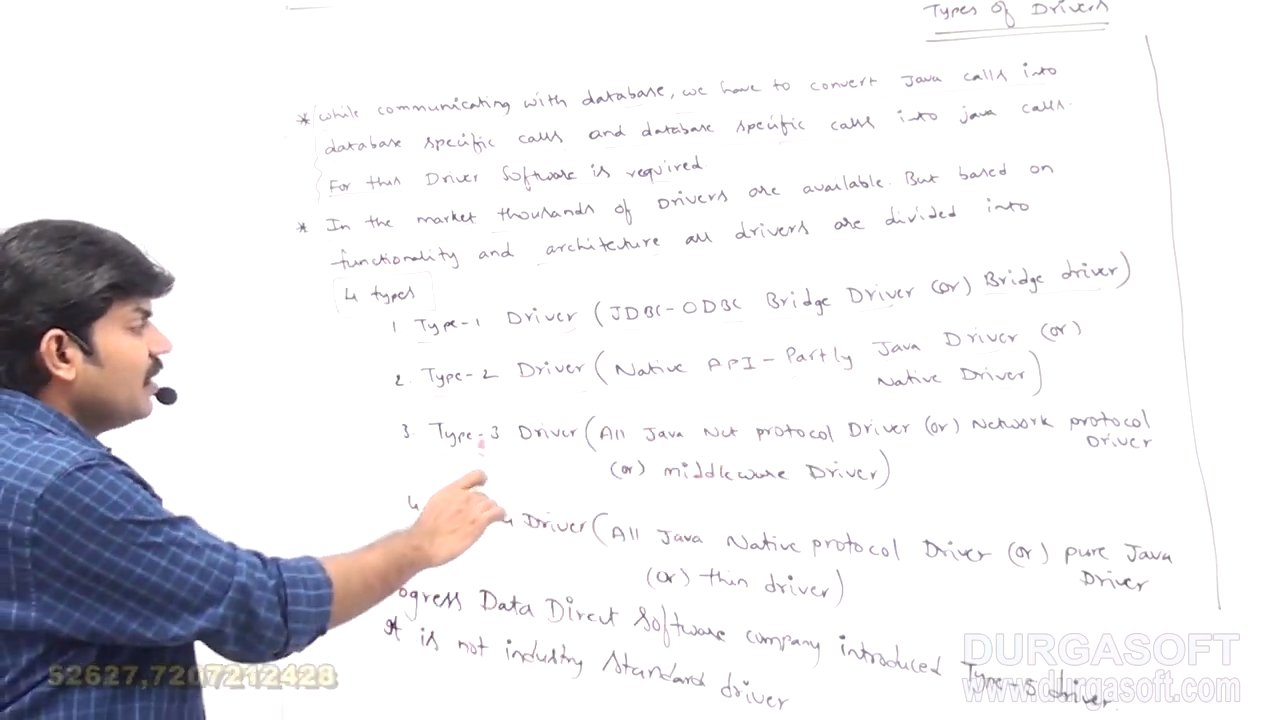 Types of Drivers
* While communicating with database, we have to convert Java calls into
database specific calls and database specific calls into java calls.
For this Driver Software is required
* In the market thousands of Drivers are available. But based on
functionality and architecture all drivers are divided into
4 types
1 Type-1 Driver (JDBC-ODBC Bridge Driver (or) Bridge driver)
2. Type-2 Driver (Native API-Partly Java Driver (or)
Native Driver)
3. Type-3 Driver (All Java Net protocol Driver (or) Network protocol
Driver
(or) middleware Driver)
4 Driver (All Java Native protocol Driver (or) pure Java
Driver
(or) thin driver)
ogress Data Direct Software company introduced Type-5 driver.
It is not industry Standard driver
52627,7207212428
DURGASOFT
www.durgasoft.com